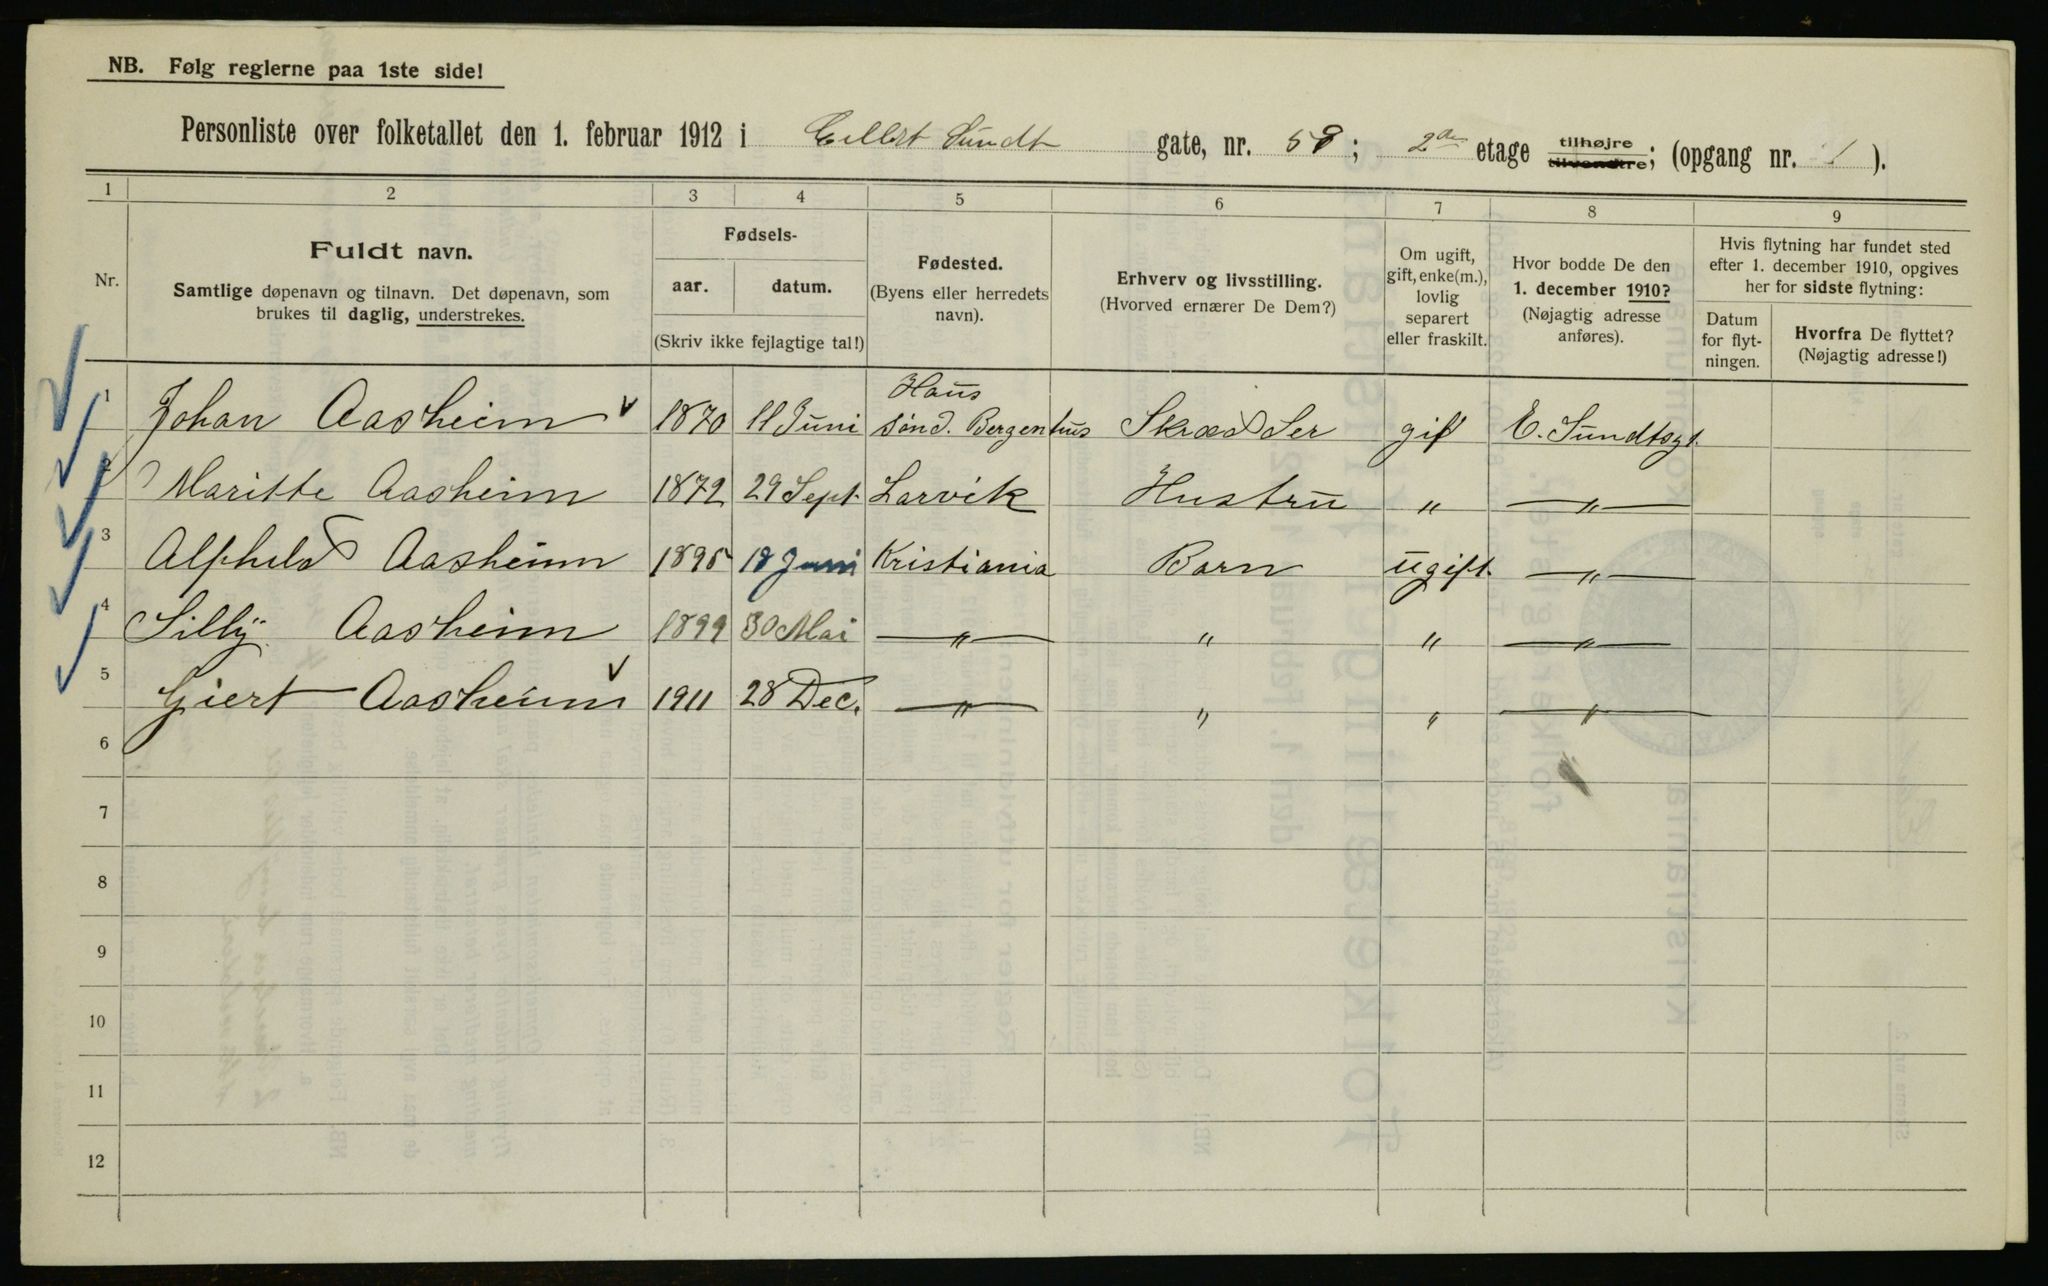 NB. Følg reglerne paa 1ste side!
Personliste over folketallet den 1. februar 1912 i Eilert Sundt gate, nr. 58; 2den etage tilhøjre tilvenstre; (opgang nr. 1 ).
1 2 3 4 5 6 7 8 9
Nr.
Fuldt navn.
Samtlige døpenavn og tilnavn. Det døpenavn, som
brukes til daglig, understrekes.
Fødsels-
aar. datum.
(Skriv ikke fejlagtige tal!)
Fødested.
(Byens eller herredets
navn).
Erhverv og livsstilling.
(Hvorved ernærer De Dem?)
Om ugift,
gift, enke(m.),
lovlig
separert
eller fraskilt.
Hvor bodde De den
1. december 1910?
(Nøjagtig adresse
anføres).
Hvis flytning har fundet sted
efter 1. december 1910, opgives
her for sidste flytning:
Datum
for flyt-
ningen.
Hvorfra De flyttet?
(Nøjagtig adresse!)
Haus
1 Johan Aasheim 1870 11 Juni Sönd. Bergenhus Skrædder gif E. Sundtsgt.
2 Maritte Aasheim 1872 29 Sept. Larvik Hustru " "
3 Alphild Aasheim 1895 18 Juni Kristiania Barn ugift. "
4 Silly Aasheim 1899 30 Mai " " " "
5 Giert Aasheim 1911 28 Dec. " " " "
6
7
8
9
10
11
12